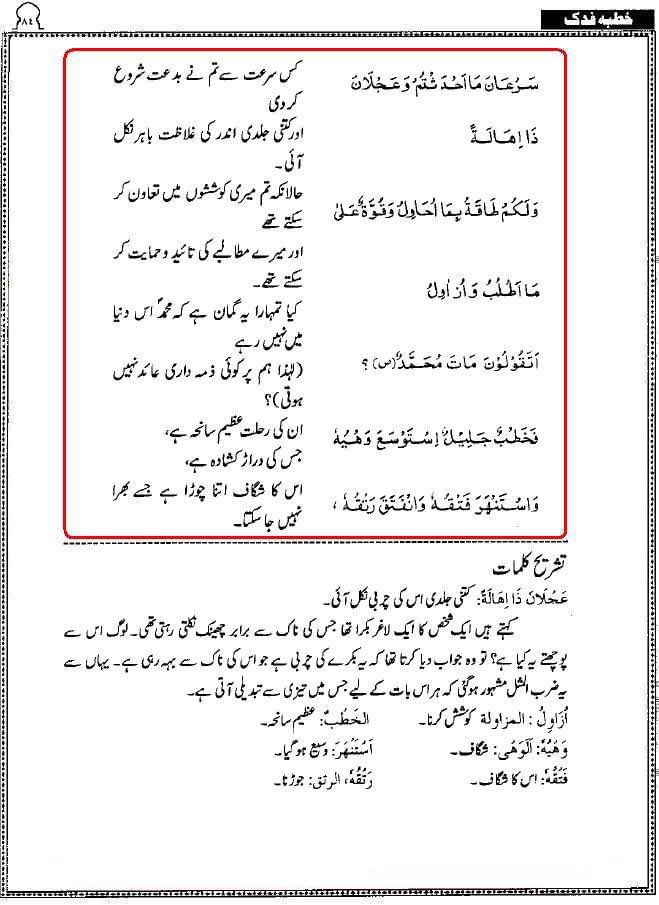 ۸۴
خطبہ فدک
سَرْعَانَ مَا اَحْدَثْتُمْ وَعَجْلَانَ
کس سرعت سے تم نے بدعت شروع
کر دی
ذَا اِهَالَةً
اور کتنی جلدی اندر کی غلاظت باہر نکل
آئی۔
وَلَكُمْ طَاقَةٌ بِمَا اُحَاوِلُ وَقُوَّةٌ عَلٰى
حالانکہ تم میری کوششوں میں تعاون کر
سکتے تھے
مَا اَطْلُبُ وَ اُزَاوِلُ
اور میرے مطالبے کی تائید و حمایت کر
سکتے تھے۔
اَتَقُوْلُوْنَ مَاتَ مُحَمَّدٌ (ص) ؟
کیا تمہارا یہ گمان ہے کہ محمدؐ اس دنیا
میں نہیں رہے
(لہٰذا ہم پر کوئی ذمہ داری عائد نہیں
ہوتی)؟
فَخَطْبٌ جَلِيْلٌ اِسْتَوْسَعَ وَهْيُهٗ
ان کی رحلت عظیم سانحہ ہے،
جس کی دراڑ کشادہ ہے،
وَاسْتَنْهَرَ فَتْقُهٗ وَانْفَتَقَ رَتْقُهٗ ،
اس کا شگاف اتنا چوڑا ہے جسے بھرا
نہیں جا سکتا۔
تشریح کلمات
عَجْلَانَ ذَا اِهَالَةً: کتنی جلدی اس کی چربی نکل آئی۔
کہتے ہیں ایک شخص کا ایک لاغر بکرا تھا جس کی ناک سے برابر چھینک نکلتی رہتی تھی۔ لوگ اس سے
پوچھتے یہ کیا ہے؟ تو وہ جواب دیا کرتا تھا کہ یہ بکرے کی چربی ہے جو اس کی ناک سے بہہ رہی ہے۔ یہاں سے
یہ ضرب المثل مشہور ہو گئی کہ ہر اس بات کے لیے جس میں تیزی سے تبدیلی آتی ہے۔
اُزَاوِلُ : المزاولة کوشش کرنا۔ الخَطْبُ: عظیم سانحہ۔
وَهْيُهٗ: اَلْوَهْیُ: شگاف۔ اَسْتَنْهَرَ: وسیع ہو گیا۔
فَتْقُهٗ: اس کا شگاف۔ رَتْقُهٗ، الرتق: جوڑنا۔